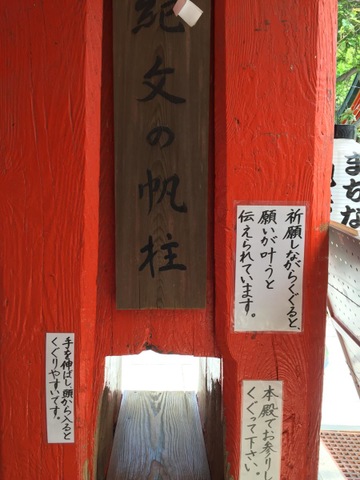 紀文の帆柱
祈願しながらくぐると、
願いが叶うと
伝えられています。
手を伸ばし、頭から入ると
くぐりやすいです。
本殿でお参りし
くぐって下さい。
まちな